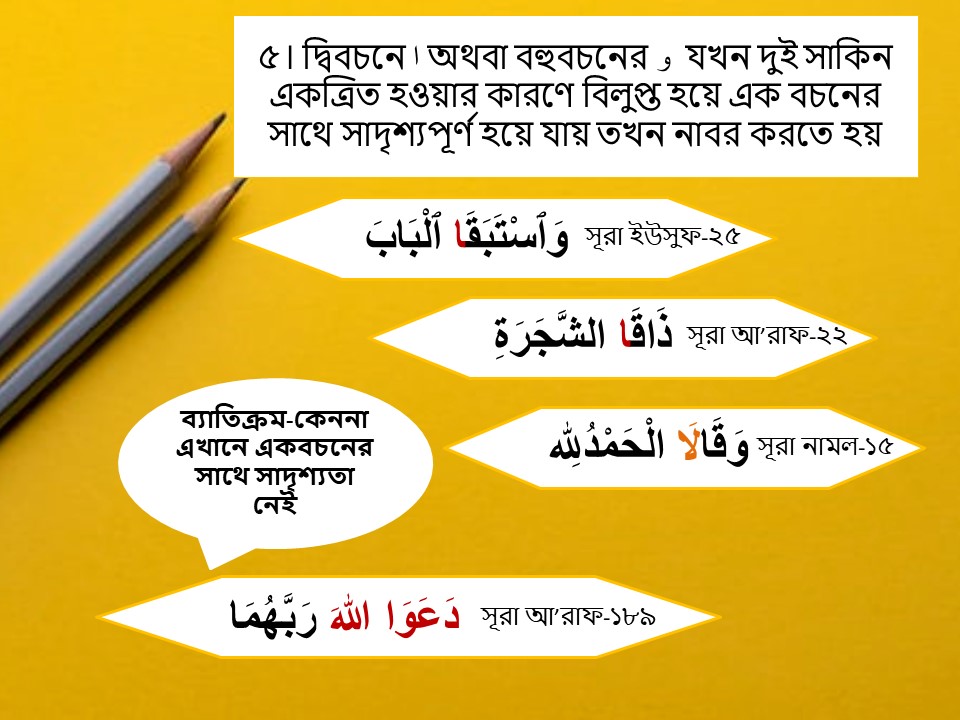 ৫। দ্বিবচনে ا অথবা বহুবচনের و যখন দুই সাকিন
একত্রিত হওয়ার কারণে বিলুপ্ত হয়ে এক বচনের
সাথে সাদৃশ্যপূর্ণ হয়ে যায় তখন নাবর করতে হয়
وَٱسْتَبَقَا ٱلْبَابَ সূরা ইউসুফ-২৫
ذَاقَا الشَّجَرَةِ সূরা আ’রাফ-২২
وَقَالَا الْحَمْدُلِلّٰه সূরা নামল-১৫
ব্যাতিক্রম-কেননা
এখানে একবচনের
সাথে সাদৃশ্যতা
নেই
دَعَوَا اللهَ رَبَّهُمَا সূরা আ’রাফ-১৮৯